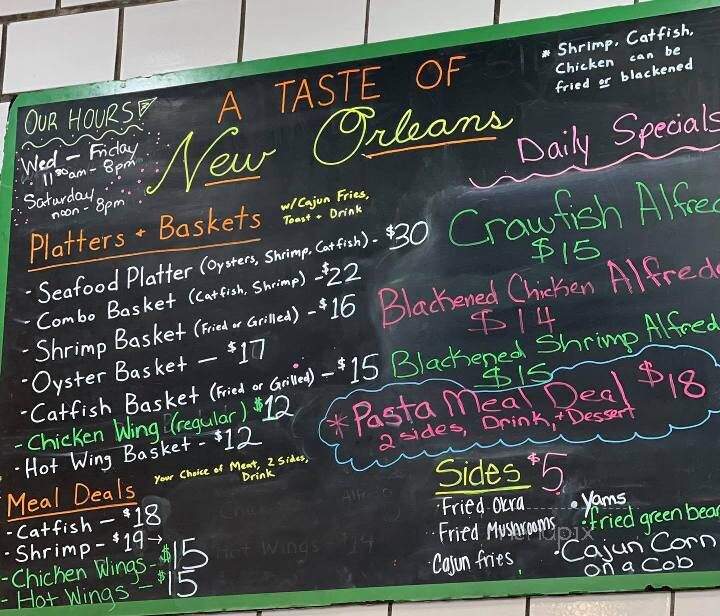 OUR HOURS
Wed - Friday
11:30am - 8pm
Saturday
noon - 8pm
A TASTE OF
New Orleans
* Shrimp, Catfish,
Chicken can be
fried or blackened
Platters + Baskets
w/Cajun Fries,
Toast + Drink
- Seafood Platter (Oysters, Shrimp, Catfish) - $30
- Combo Basket (Catfish, Shrimp) - $22
- Shrimp Basket (Fried or Grilled) - $16
- Oyster Basket - $17
- Catfish Basket (Fried or Grilled) - $15
- Chicken Wing (regular) $12
- Hot Wing Basket - $12
Meal Deals
Your Choice of Meat, 2 Sides,
Drink
- Catfish - $18
- Shrimp - $19 →
- Chicken Wings - $15
- Hot Wings - $15
Daily Specials
Crawfish Alfred
$15
Blackened Chicken Alfredo
$14
Blackened Shrimp Alfred
$15
* Pasta Meal Deal $18
2 sides, Drink, + Dessert
Sides $5
· Fried Okra
· Fried Mushrooms
· Cajun fries
· Yams
· fried green bean
· Cajun Corn
on a Cob
Hot Wings $14